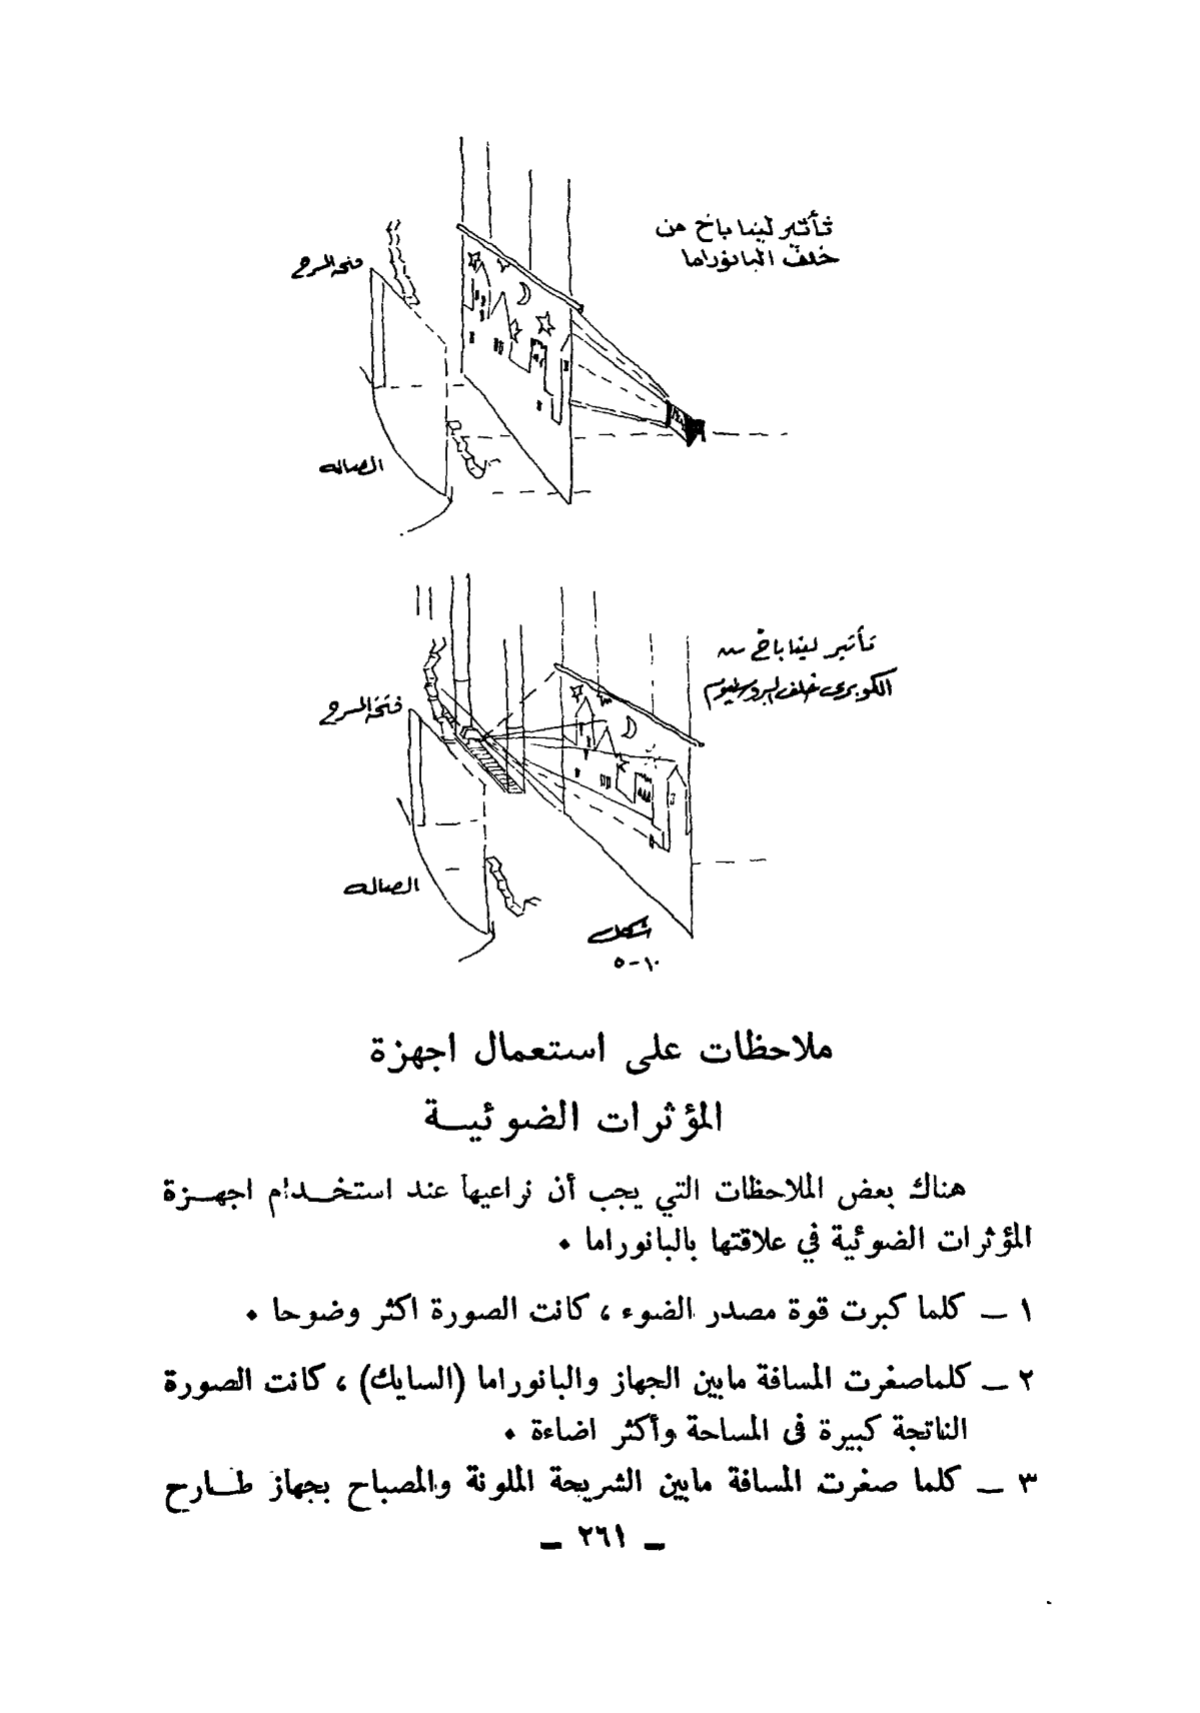 تأثير لينا باخ من
خلف البانوراما
فتحة المسرح
الصاله
تأثير لينا باخ من
الكوبرى خلف البروسنيوم
فتحة المسرح
الصاله
شكل
١٠-٥
ملاحظات على استعمال اجهزة
المؤثرات الضوئيــة
هناك بعض الملاحظات التي يجب أن نراعيها عند استخــدام اجهــزة
المؤثرات الضوئية في علاقتها بالبانوراما .
١ ــ كلما كبرت قوة مصدر الضوء ، كانت الصورة اكثر وضوحا .
٢ ــ كلماصغرت المسافة مابين الجهاز والبانوراما (السايك) ، كانت الصورة
الناتجة كبيرة فى المساحة وأكثر اضاءة .
٣ ــ كلما صغرت المسافة مابين الشريحة الملونة والمصباح بجهاز طــارح
ــ ٢٦١ ــ